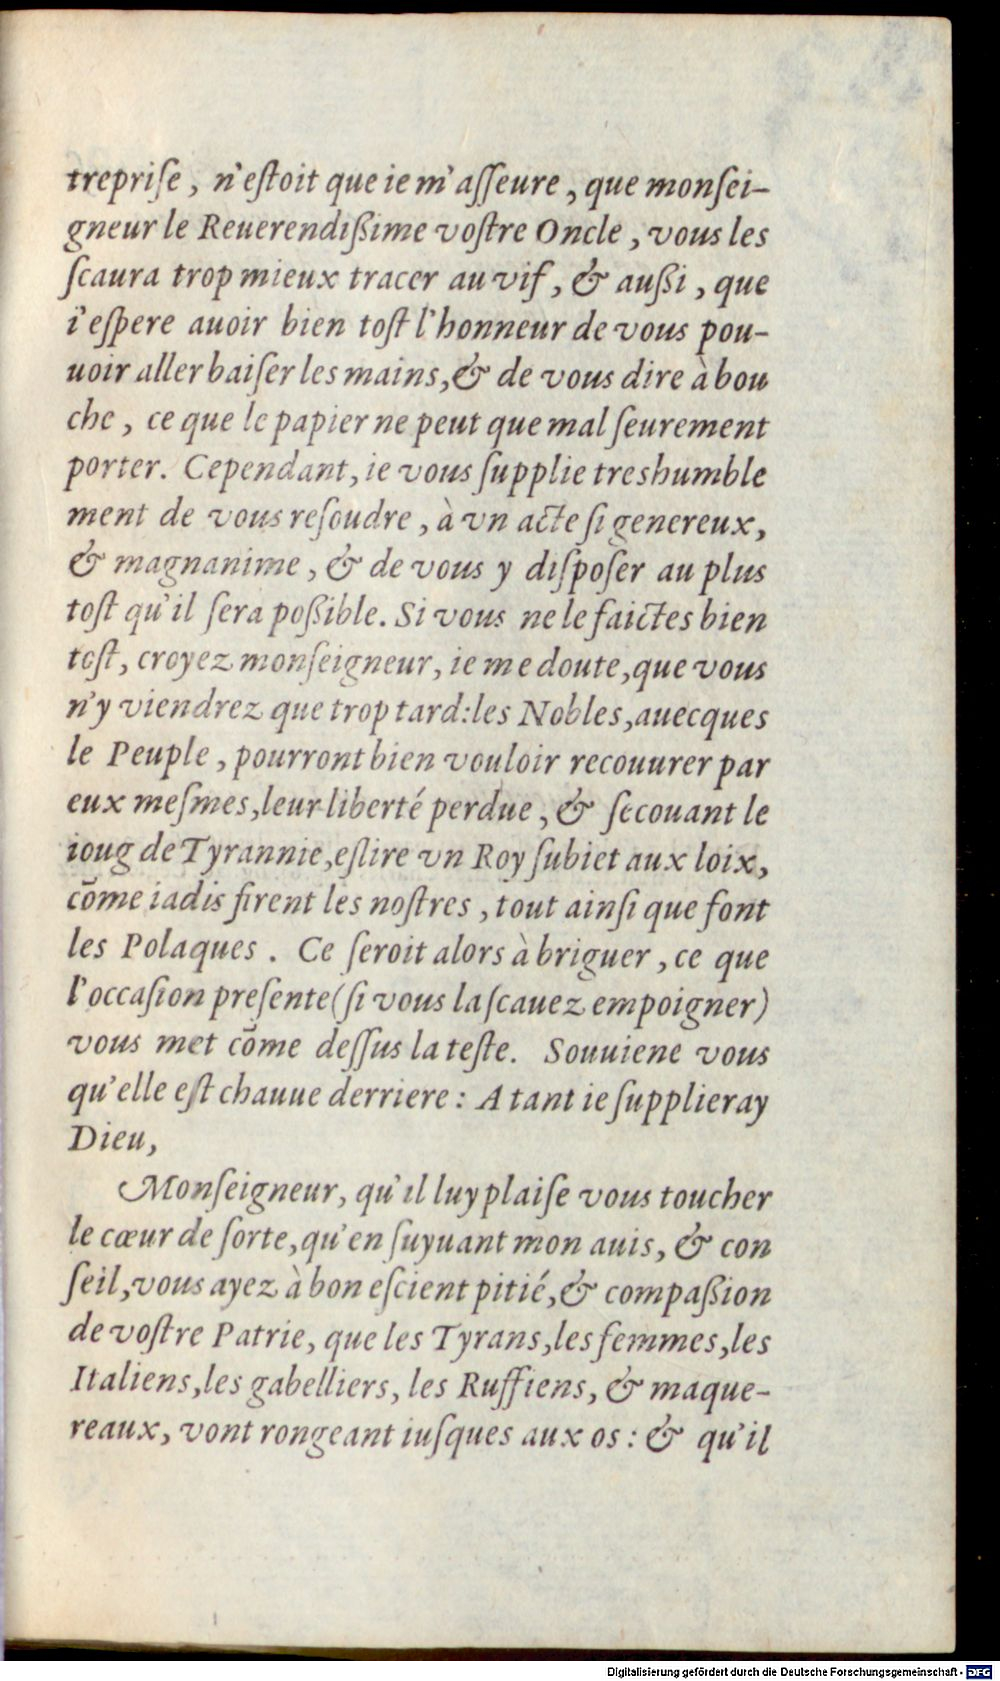 trepriſe, n'eſtoit que ie m'aſſeure, que monſei-
gneur le Reuerendißime voſtre Oncle, vous les
ſcaura trop mieux tracer au vif, & außi, que
i'eſpere auoir bien toſt l'honneur de vous pou-
uoir aller baiſer les mains, & de vous dire à bou
che, ce que le papier ne peut que mal ſeurement
porter. Cependant, ie vous ſupplie treshumble
ment de vous reſoudre, à vn acte ſi genereux,
& magnanime, & de vous y diſpoſer au plus
toſt qu'il ſera poßible. Si vous ne le faictes bien
toſt, croyez monſeigneur, ie me doute, que vous
n'y viendrez que trop tard: les Nobles, auecques
le Peuple, pourront bien vouloir recouurer par
eux meſmes, leur liberté perdue, & ſecouant le
ioug de Tyrannie, eslire vn Roy ſubiet aux loix,
cōme iadis firent les noſtres, tout ainſi que font
les Polaques. Ce ſeroit alors à briguer, ce que
l'occaſion preſente (ſi vous la ſcauez empoigner)
vous met cōme deſſus la teſte. Souuiene vous
qu'elle eſt chauue derriere: A tant ie ſupplieray
Dieu,
Monſeigneur, qu'il luy plaiſe vous toucher
le cœur de ſorte, qu'en ſuyuant mon auis, & con
ſeil, vous ayez à bon eſcient pitié, & compaßion
de voſtre Patrie, que les Tyrans, les femmes, les
Italiens, les gabelliers, les Ruffiens, & maque-
reaux, vont rongeant iuſques aux os: & qu'il
Digitalisierung gefördert durch die Deutsche Forschungsgemeinschaft - DFG